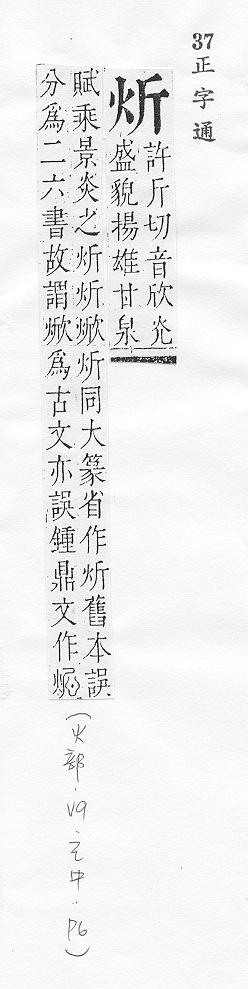 37 正字通
炘 許斤切音欣光
盛貌揚雄甘泉
賦乘景炎之炘炘焮炘同大篆省作炘舊本誤
分爲二六書故謂焮爲古文亦誤鍾鼎文作
(火部.V9.已中.P6)